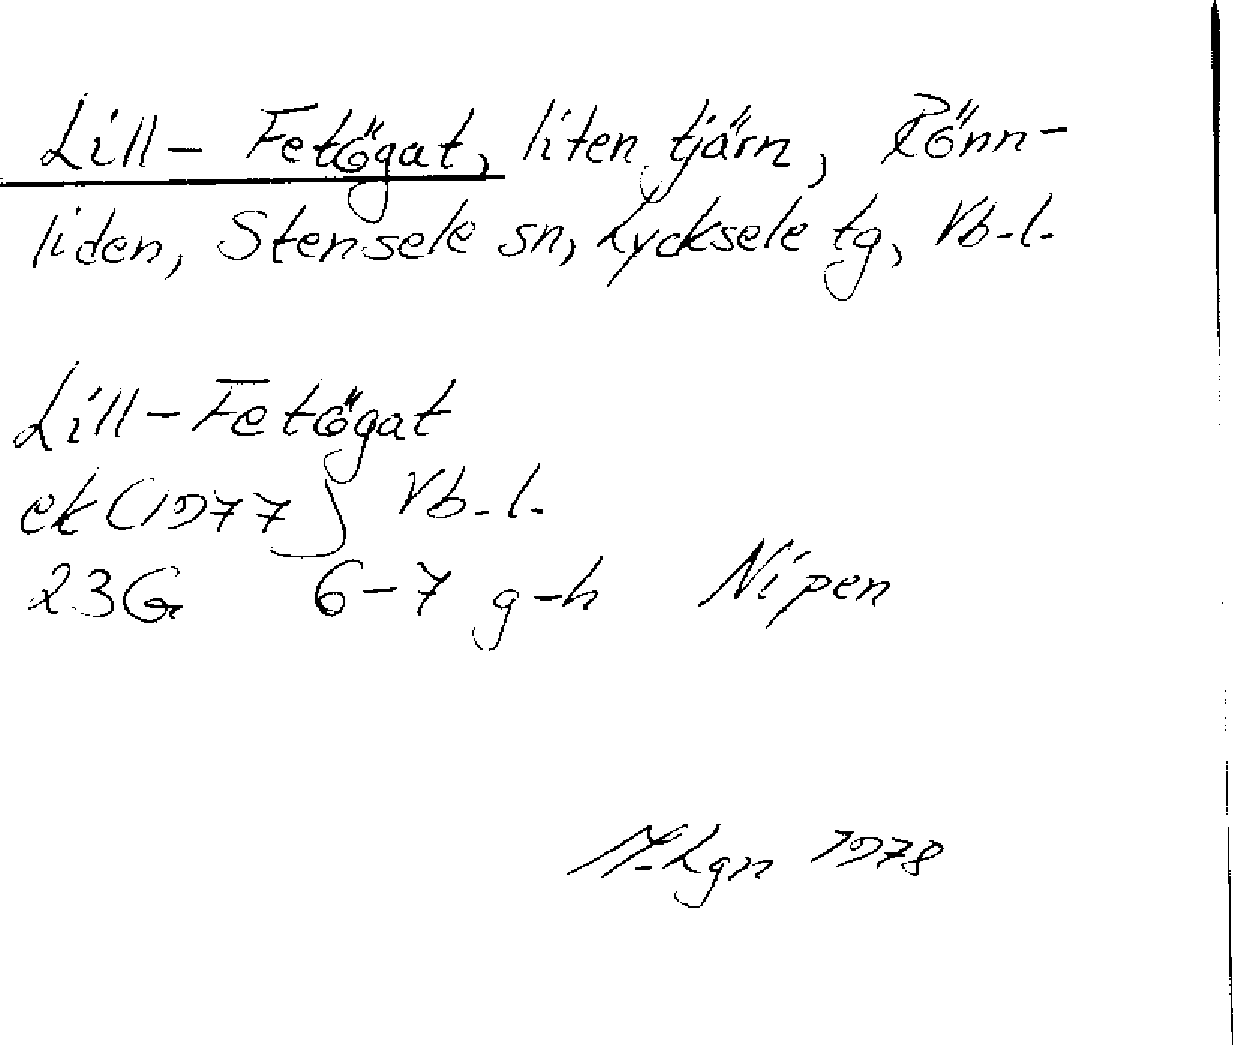 Lill-Fetögat, liten tjärn, Rönn-
liden, Stensele sn, Lycksele tg, Vb.l.
Lill-Fetögat
ek (1977) Vb.l.
23G 6-7 g-h Nipen
M.Lgn 1978